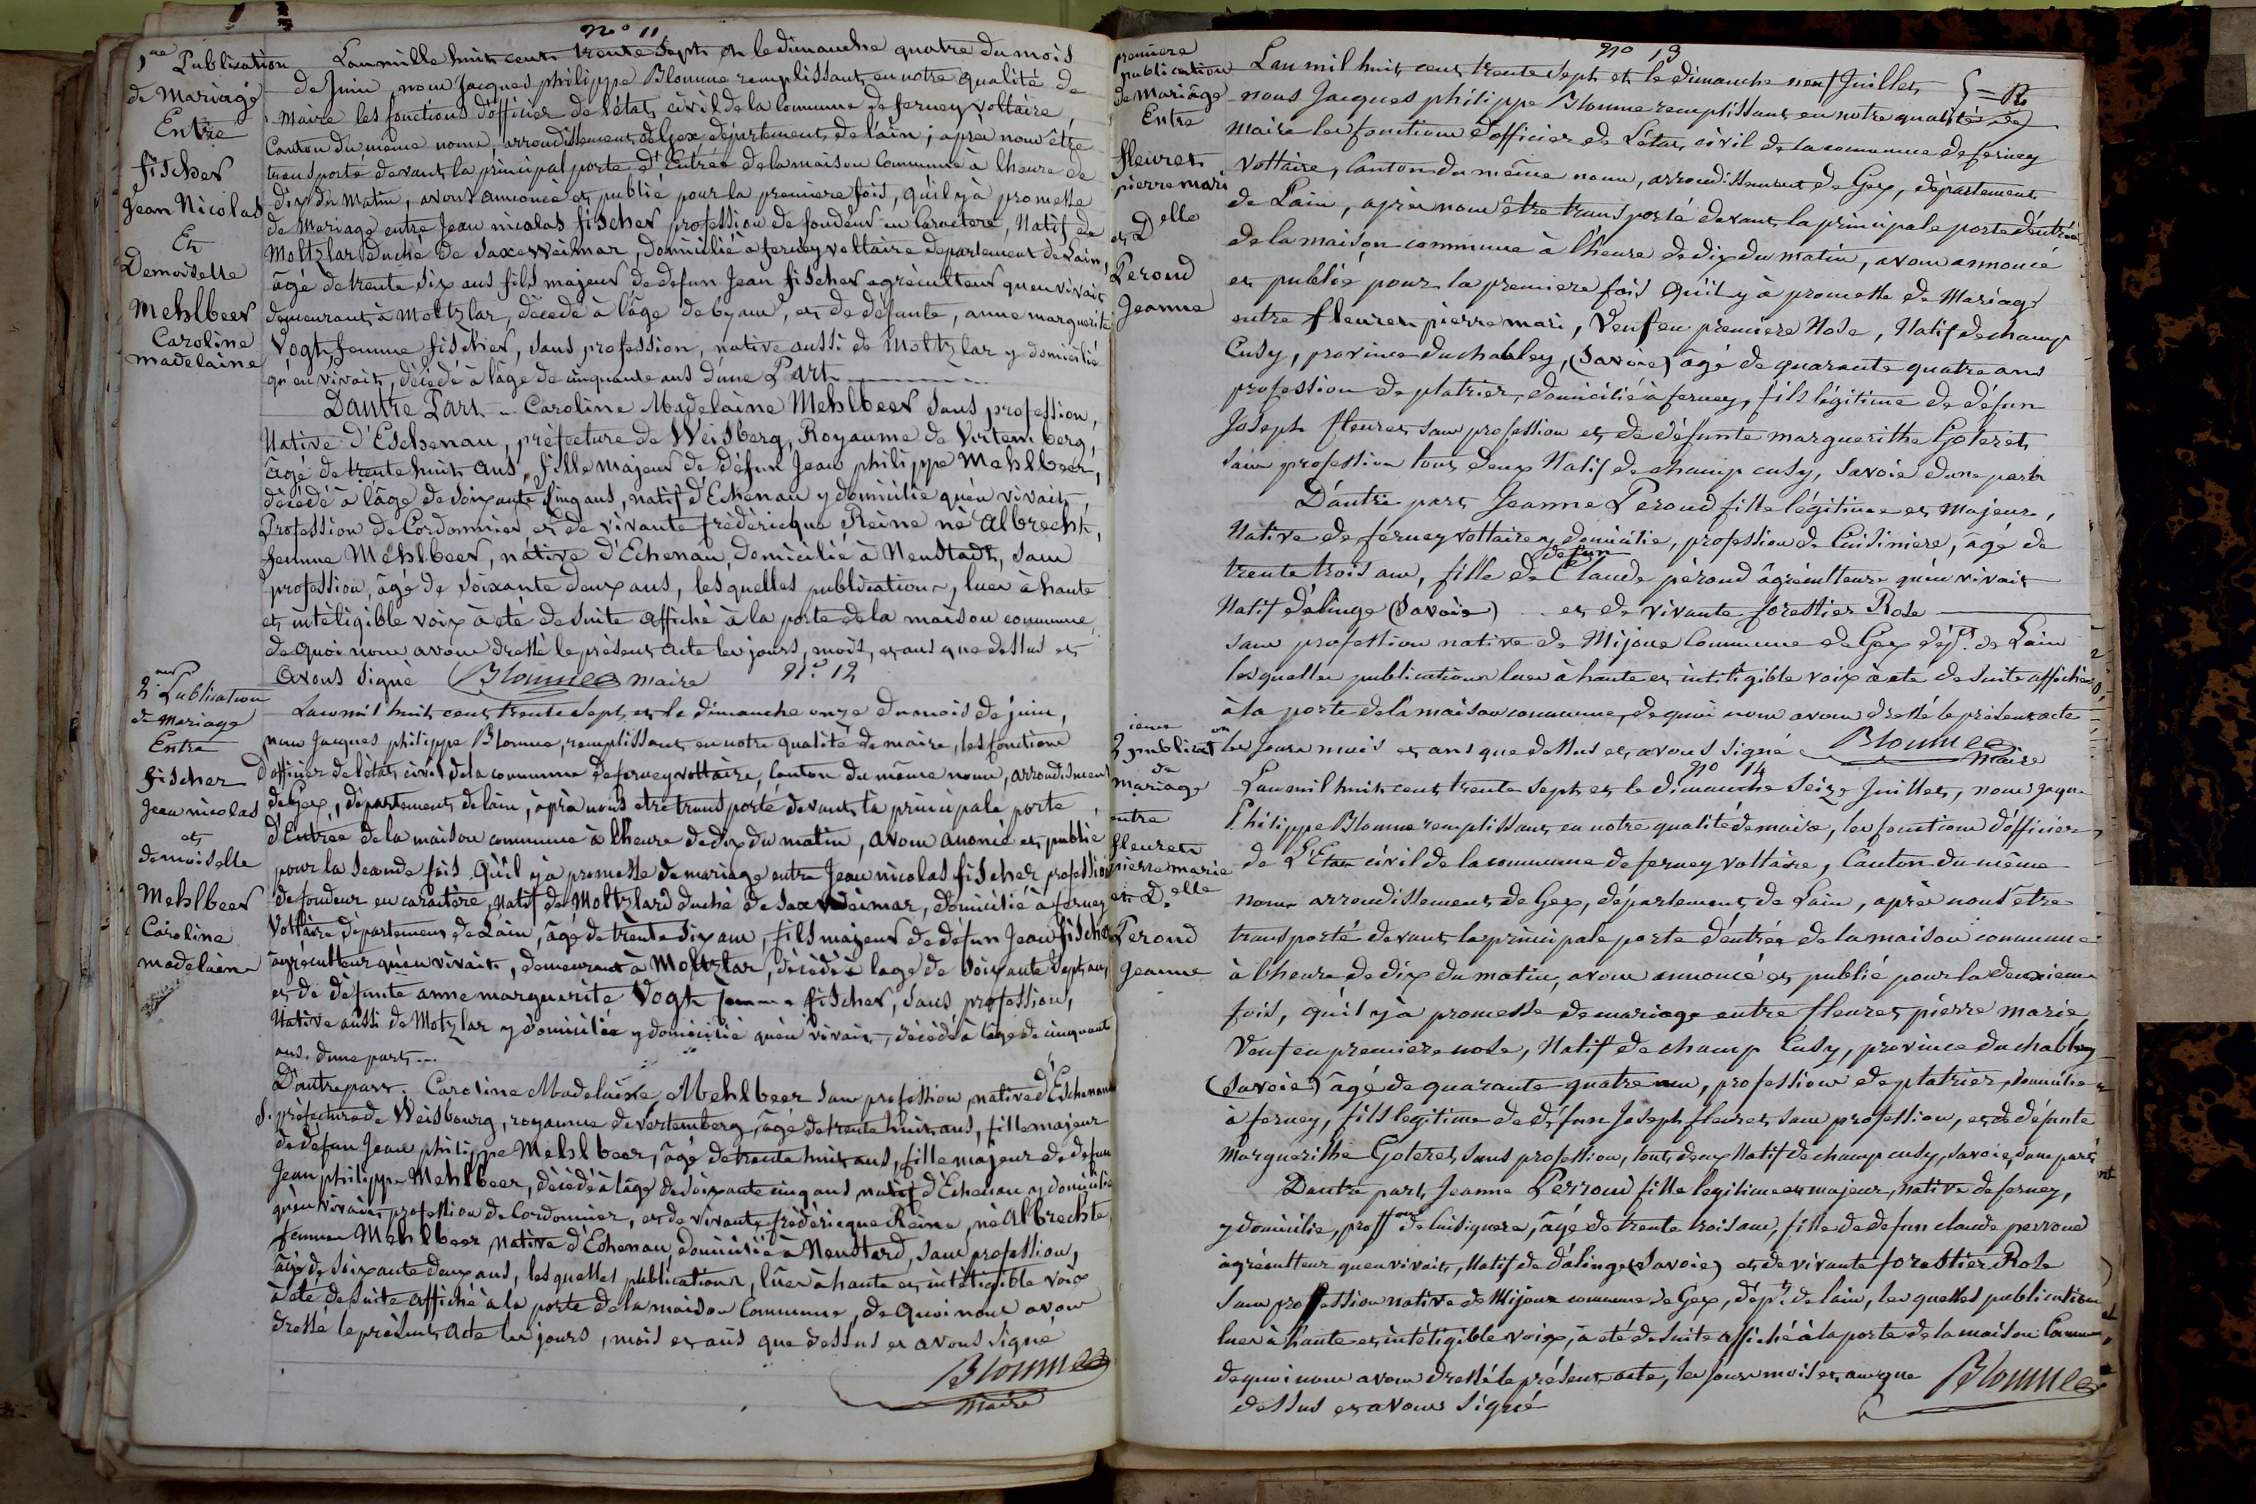 n° 11
1re Publication
de Mariage
Entre
fischer
Jean Nicolas
Et
Demoiselle
Mehlbeer
Caroline
madelaine
L'an mille huit cent trente sept et le dimanche quatre du mois
de Juin, nous Jacques philippe Blonme remplissant en notre qualité de
maire les fonctions d'officier de l'état civil de la Commune de ferney voltaire,
Canton du même nom, arrondissement de Gex, département de l'ain; après nous être
transporté devant la principal porte dt Entrée de la maison Commune à lheure de
dix du Matin, avons annoncé et publié pour la premiere fois, qu'il y à promesse
de Mariage entre Jean nicolas fischer profession de fondeur en Caractere, Natif de
Moltzlar Duché de Saxe weimar, domicilié à ferney voltaire département de Lain,
âgé de trente six ans fils majeur de defun Jean fischer agriculteur qu'en vivait
demeurant à Moltzlar, décedé à l'âge de 67 ans, et de défunte, anne marguerite
Vogt, femme fischer, sans profession, native aussi de Moltzlar y domicilié
qu'en vivait, décédé à l'âge de cinquante ans d'une Part
D'autre Part - Caroline Madelaine Mehlbeer sans profession,
Native d'Eschenau, préfecture de Weisberg, Royaume de Virtemberg,
âgé de trente huit ans, fille majeur de défun Jean philippe Mehlbeer,
décédé à l'âge de soixante cinq ans, natif d'Echenau y domicilié qu'en vivait,
Profession de Cordonnier et de vivante frédéricque Reine né Albrecht,
femme Mehlbeer, native d'Echenau, domicilié à Neustadt, sans
profession, âgé de soixante deux ans, lesquelles publications, lues à haute
et intéligible voix à été de suite affiché à la porte de la maison commune,
de quoi nous avons dressé le présent acte les jours, mois, et ans que dessus et
avons signé Blonme maire
n° 12
2me Publication
de mariage
Entre
fischer
Jean nicolas
et
demoiselle
Mehlbeer
Caroline
madelaine
L'an mil huit cent trente sept et le dimanche onze du mois de juin,
nous Jacques philippe Blonme, remplissant en notre qualité de maire, les fonctions
d'officier de l'état civil de la commune de ferney voltaire, canton du même nom, arrondisment
de Gex, département de lain, après nous être transporté devant la principale porte
d'Entrée de la maison commune à lheure de dix du matin, avons anoncé et publié
pour la seconde fois qu'il y à promesse de mariage entre Jean nicolas fischer profession
de fondeur en caractère, natif de Moltzlard duché de Sax Weimar, domicilié à ferney
Voltaire département de Lain, âgé de trente six ans, fils majeur de défun Jean fischer
agriculteur qu'en vivait, demeurant à Moltzlar, décédé à lage de soixante sept ans,
et de défunte anne marguerite Vogt femme fischer, sans profession,
Native aussi de Motzlar y domicilié y domicilié qu'en vivait, décédé à l'âge de cinquante
ans. d'une part
D'autre part, Caroline Madelaine Mehlbeer sans profession native d'Eschenau
préfecture de Weisbourg, royaume de Vertemberg, âgé de trente huit ans, fille majeur
de défun Jean philippe Mehlbeer, âgé de trente huit ans, fille majeur de defun
Jean philippe Mehlbeer, décédé à l'âge de soixante cinq ans natif d'Echenau y domicilié
qu'en vivait, profession de Cordonnier, et de vivante, frédéricque Reine, né Albrechte,
femme Mehlbeer, native d'Echenau, domicilié à Neustard, sans profession,
âgé de soixante deux ans, lesquelles publications, lües à haute et intéligible voix
à été de suite affiché à la porte de la maison Commune, de quoi nous avons
dressé le présent acte les jours, mois et ans que dessus et avons signé
Blonme
maire
n° 13
premiere
publication
de mariage
Entre
fleuret
pierre mari
et Delle
Peroud
Jeanne
L'an mil huit cent trente sept et le dimanche neuf Juillet
nous Jacques philippe Blonme remplissant en notre qualité de
maire les fonctions d'officier de L'état civil de la commune de ferney
voltaire, Canton du même nom, arrondissement de Gex, département
de Lain, après nous être transporté devant la principale porte d'entrée
de la maison commune à l'heure de dix du matin, avons annoncé
et publié pour la premiere fois qu'il y à promesse de Mariage
entre fleuret pierre mari, Veuf en premiere Nose, Natif de champ
Cusy, province du chabley, (Savoie) âgé de quarante quatre ans
profession de platrier, domicilié à ferney, fils légitime de défun
Joseph fleuret sans profession et de défunte margueritthe Goteret
sans profession tous deux Natif de champ cusy, Savoie d'une part
D'autre part Jeanne Peroud fille légitime et Majeur,
Native de ferney voltaire y domicilié, profession de Cuisiniere, âgé de
trente trois ans, fille de defun Claude péroud âgriculteur qu'en vivait
Natif d'alinge (Savoie) et de vivante forestier Rose
sans profession native de Mijoux Commune de Gex dépt. de Lain
lesquelles publications lues à haute et intéligible voix à été de suite affiché
à la porte de la maison commune, de quoi nous avons dressé le présent acte
les jours mois et ans que dessus et avons signé Blonme
maire
n° 14
2ieme publication
de
mariage
entre
fleuret
pierre marie
et Delle
Peroud
Jeanne
L'an mil huit cent trente sept et le dimanche seize Juillet, nous Jaque
Philippe Blonme remplissant en notre qualité de maire, les fonctions d'officier
de L'Etat civil de la commune de ferney voltaire, Canton du même
nom arrondissement de Gex, département de Lain, après nous être
transporté devant la principale porte d'entrée de la maison commune
à l'heure de dix du matin, avons annoncé et publié pour la deuxieme
fois, qu'il y à promesse de mariage entre fleuret pierre marie,
Veuf en premiere nose, Natif de champ Cusy, province du chabley
(Savoie) âgé de quarante quatre ans, profession de platrier, domicilié
à ferney, fils legitime de défun Joseph fleuret sans profession, et de défunte
Margueritthe Goteret, sans profession, tous deux Natif de champ cusy, savoie, d'une part
D'autre part, Jeanne Perroud fille legitime et majeur, native de ferney,
y domicilié, proffon de Cuisiguere, âgé de trente trois ans, fille de defun claude perroud
âgriculteur qu'en vivait, Natif de d'alinge (Savoie) et de vivante forestier Rose
sans profession native de Mijoux commune de Gex, dépt. de lain, lesquelles publications
lues à haute et intéligible voix, à été de suite affiché à la porte de la maison Commune
de quoi nous avons dressé le présent acte, les jours mois et ans que
dessus et avons signé Blonme